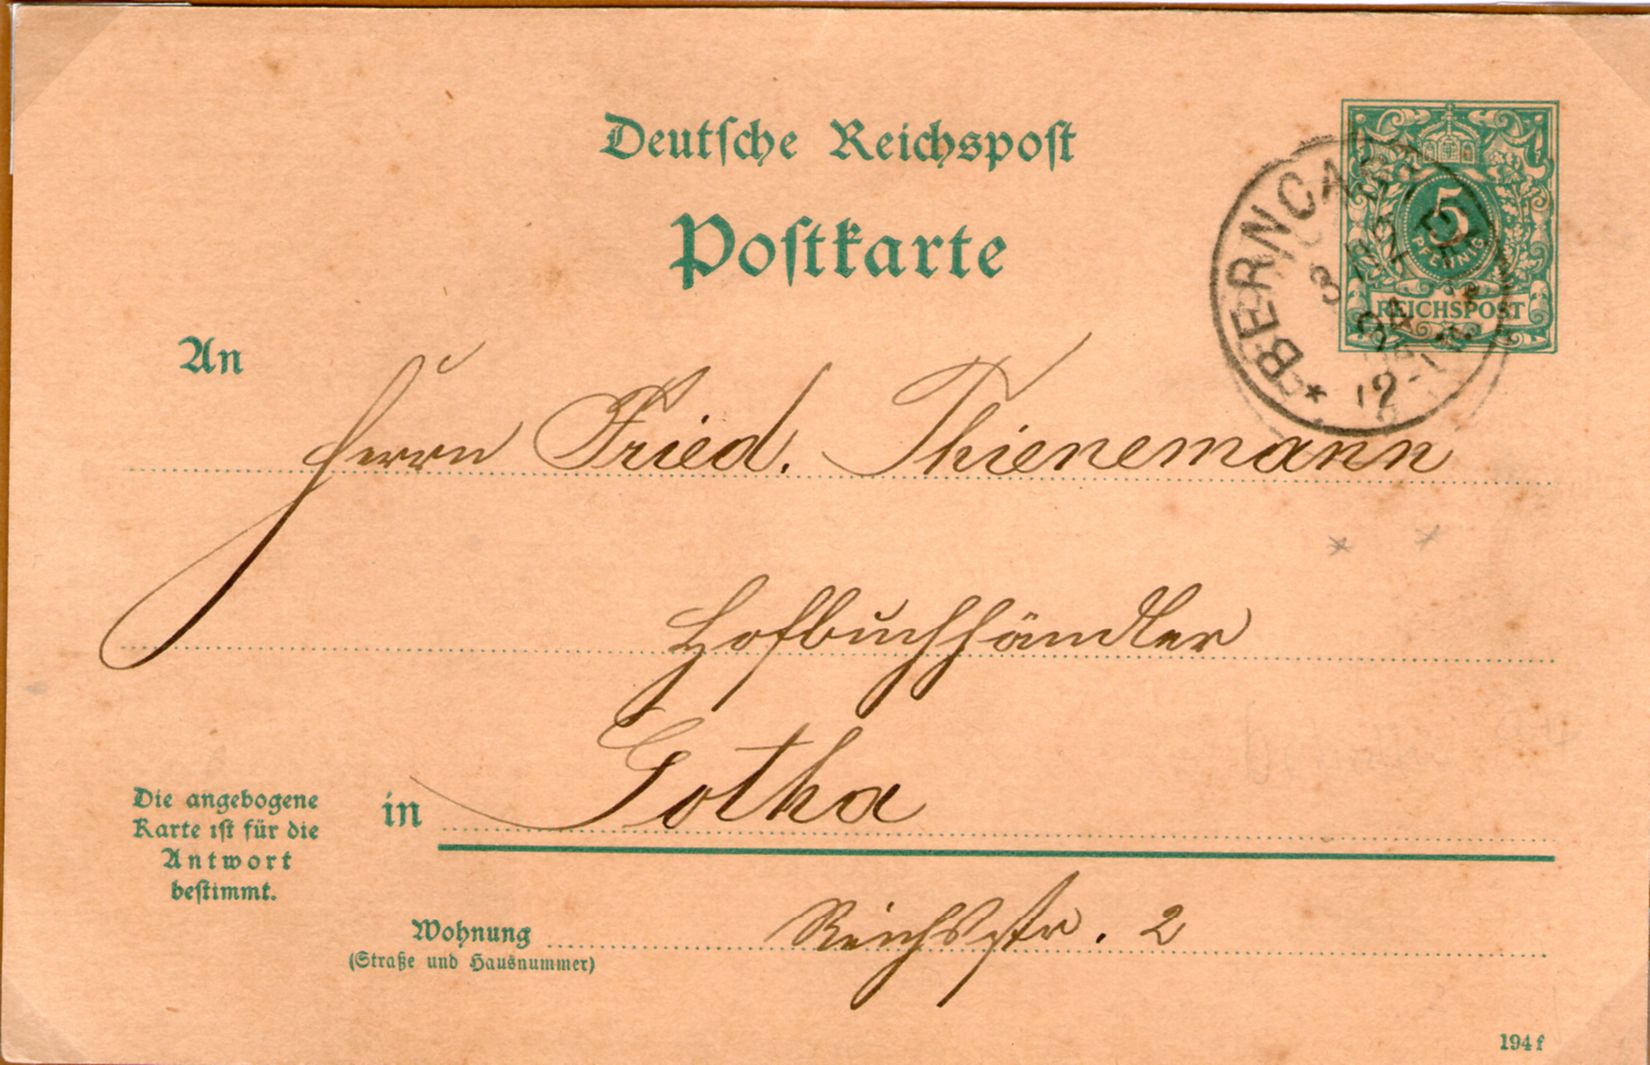 Deutsche Reichspost
Postkarte
5
PFENNIG
REICHSPOST
* BERNCASTEL
94
12-1
An
Herrn Fried. Thienemann
Hofbuchhändler
in Gotha
Die angebogene
Karte ist für die
Antwort
bestimmt.
Wohnung Reichsstr. 2
(Straße und Hausnummer)
194 f